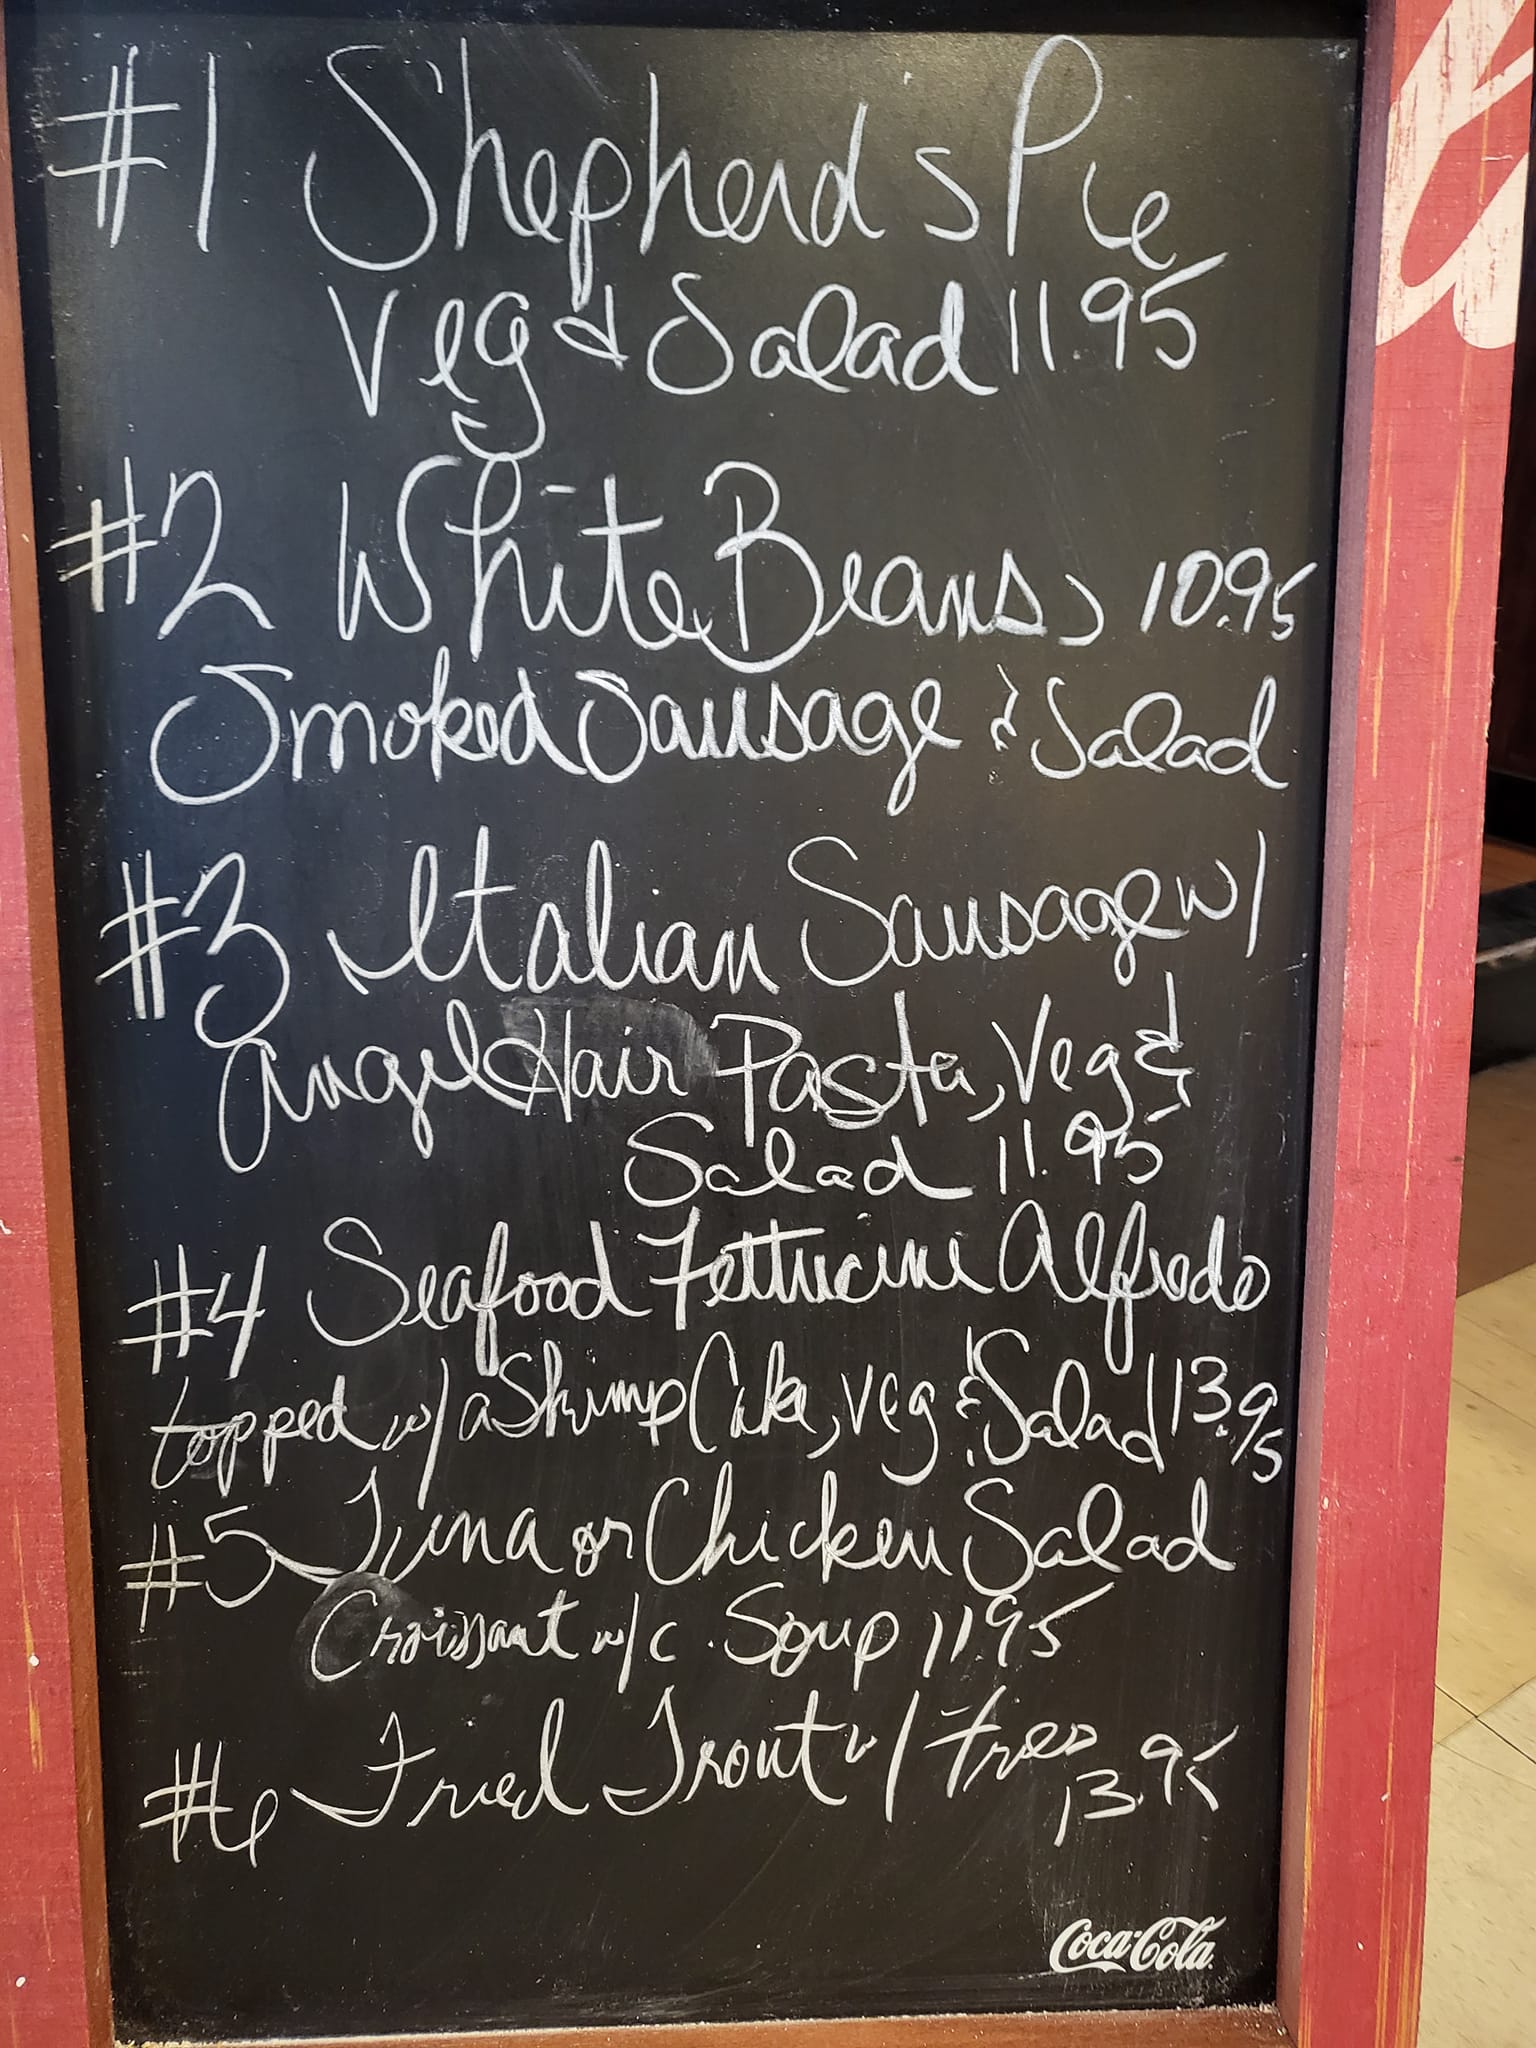 #1 Shepherd's Pie
Veg & Salad 11.95
#2 White Beans, 10.95
Smoked Sausage & Salad
#3 Italian Sausage w/
Angel Hair Pasta, Veg &
Salad 11.95
#4 Seafood Fettucini Alfredo
topped w/ a Shrimp Cake, Veg & Salad 13.95
#5 Tuna or Chicken Salad
Croissant w/ c. Soup 11.95
#6 Fried Trout w/ Fries
13.95
Coca-Cola